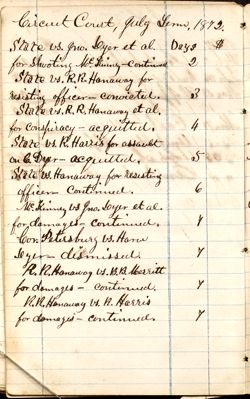 Circuit Court, July Term, 1872.
State vs. Jno. Dyer et al. Days $
for shooting McKinney - continued 2
State vs. R.R. Hanaway for
resisting officer - convicted. 3
State vs. R.R. Hanaway et al.
for conspiracy - acquitted. 4
State vs. R. Harris for assault
on C. Dyer - acquitted. 5
State vs. Hanaway for resisting
officer - continued. 6
McKinney vs Jno. Dyer et al
for damages - continued. 7
Petersburg vs.
Dyer - dismissed. 7
R.R. Hanaway vs. Merritt
for damages - continued. 7
R.R. Hanaway vs. R. Harris
for damages - continued. 7